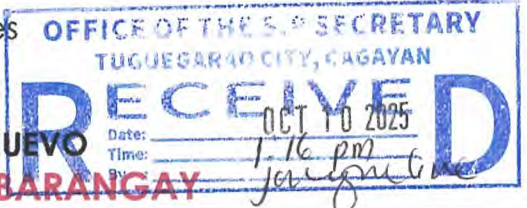 es
OFFICE OF THE S.P SECRETARY
TUGUEGARAO CITY, CAGAYAN
RECEIVED
UEVO
Date: OCT 10 2025
Time: 1:16 pm
By:
BARANGAY